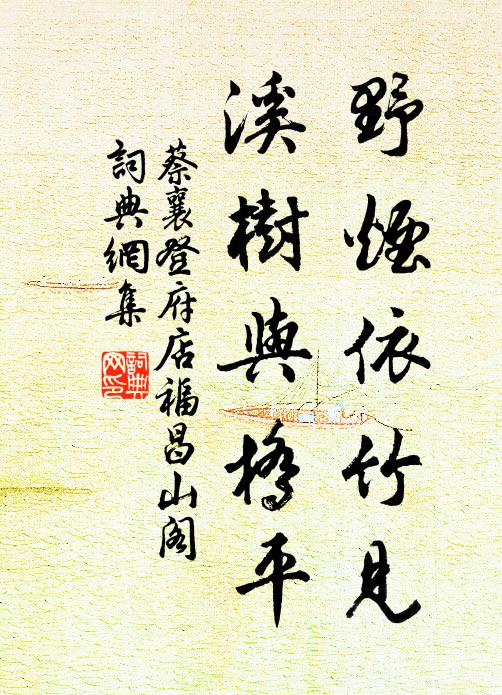 野煙依竹見
溪樹與橋平
蔡襄登府店福昌山阁
詞典網集
詞典网印